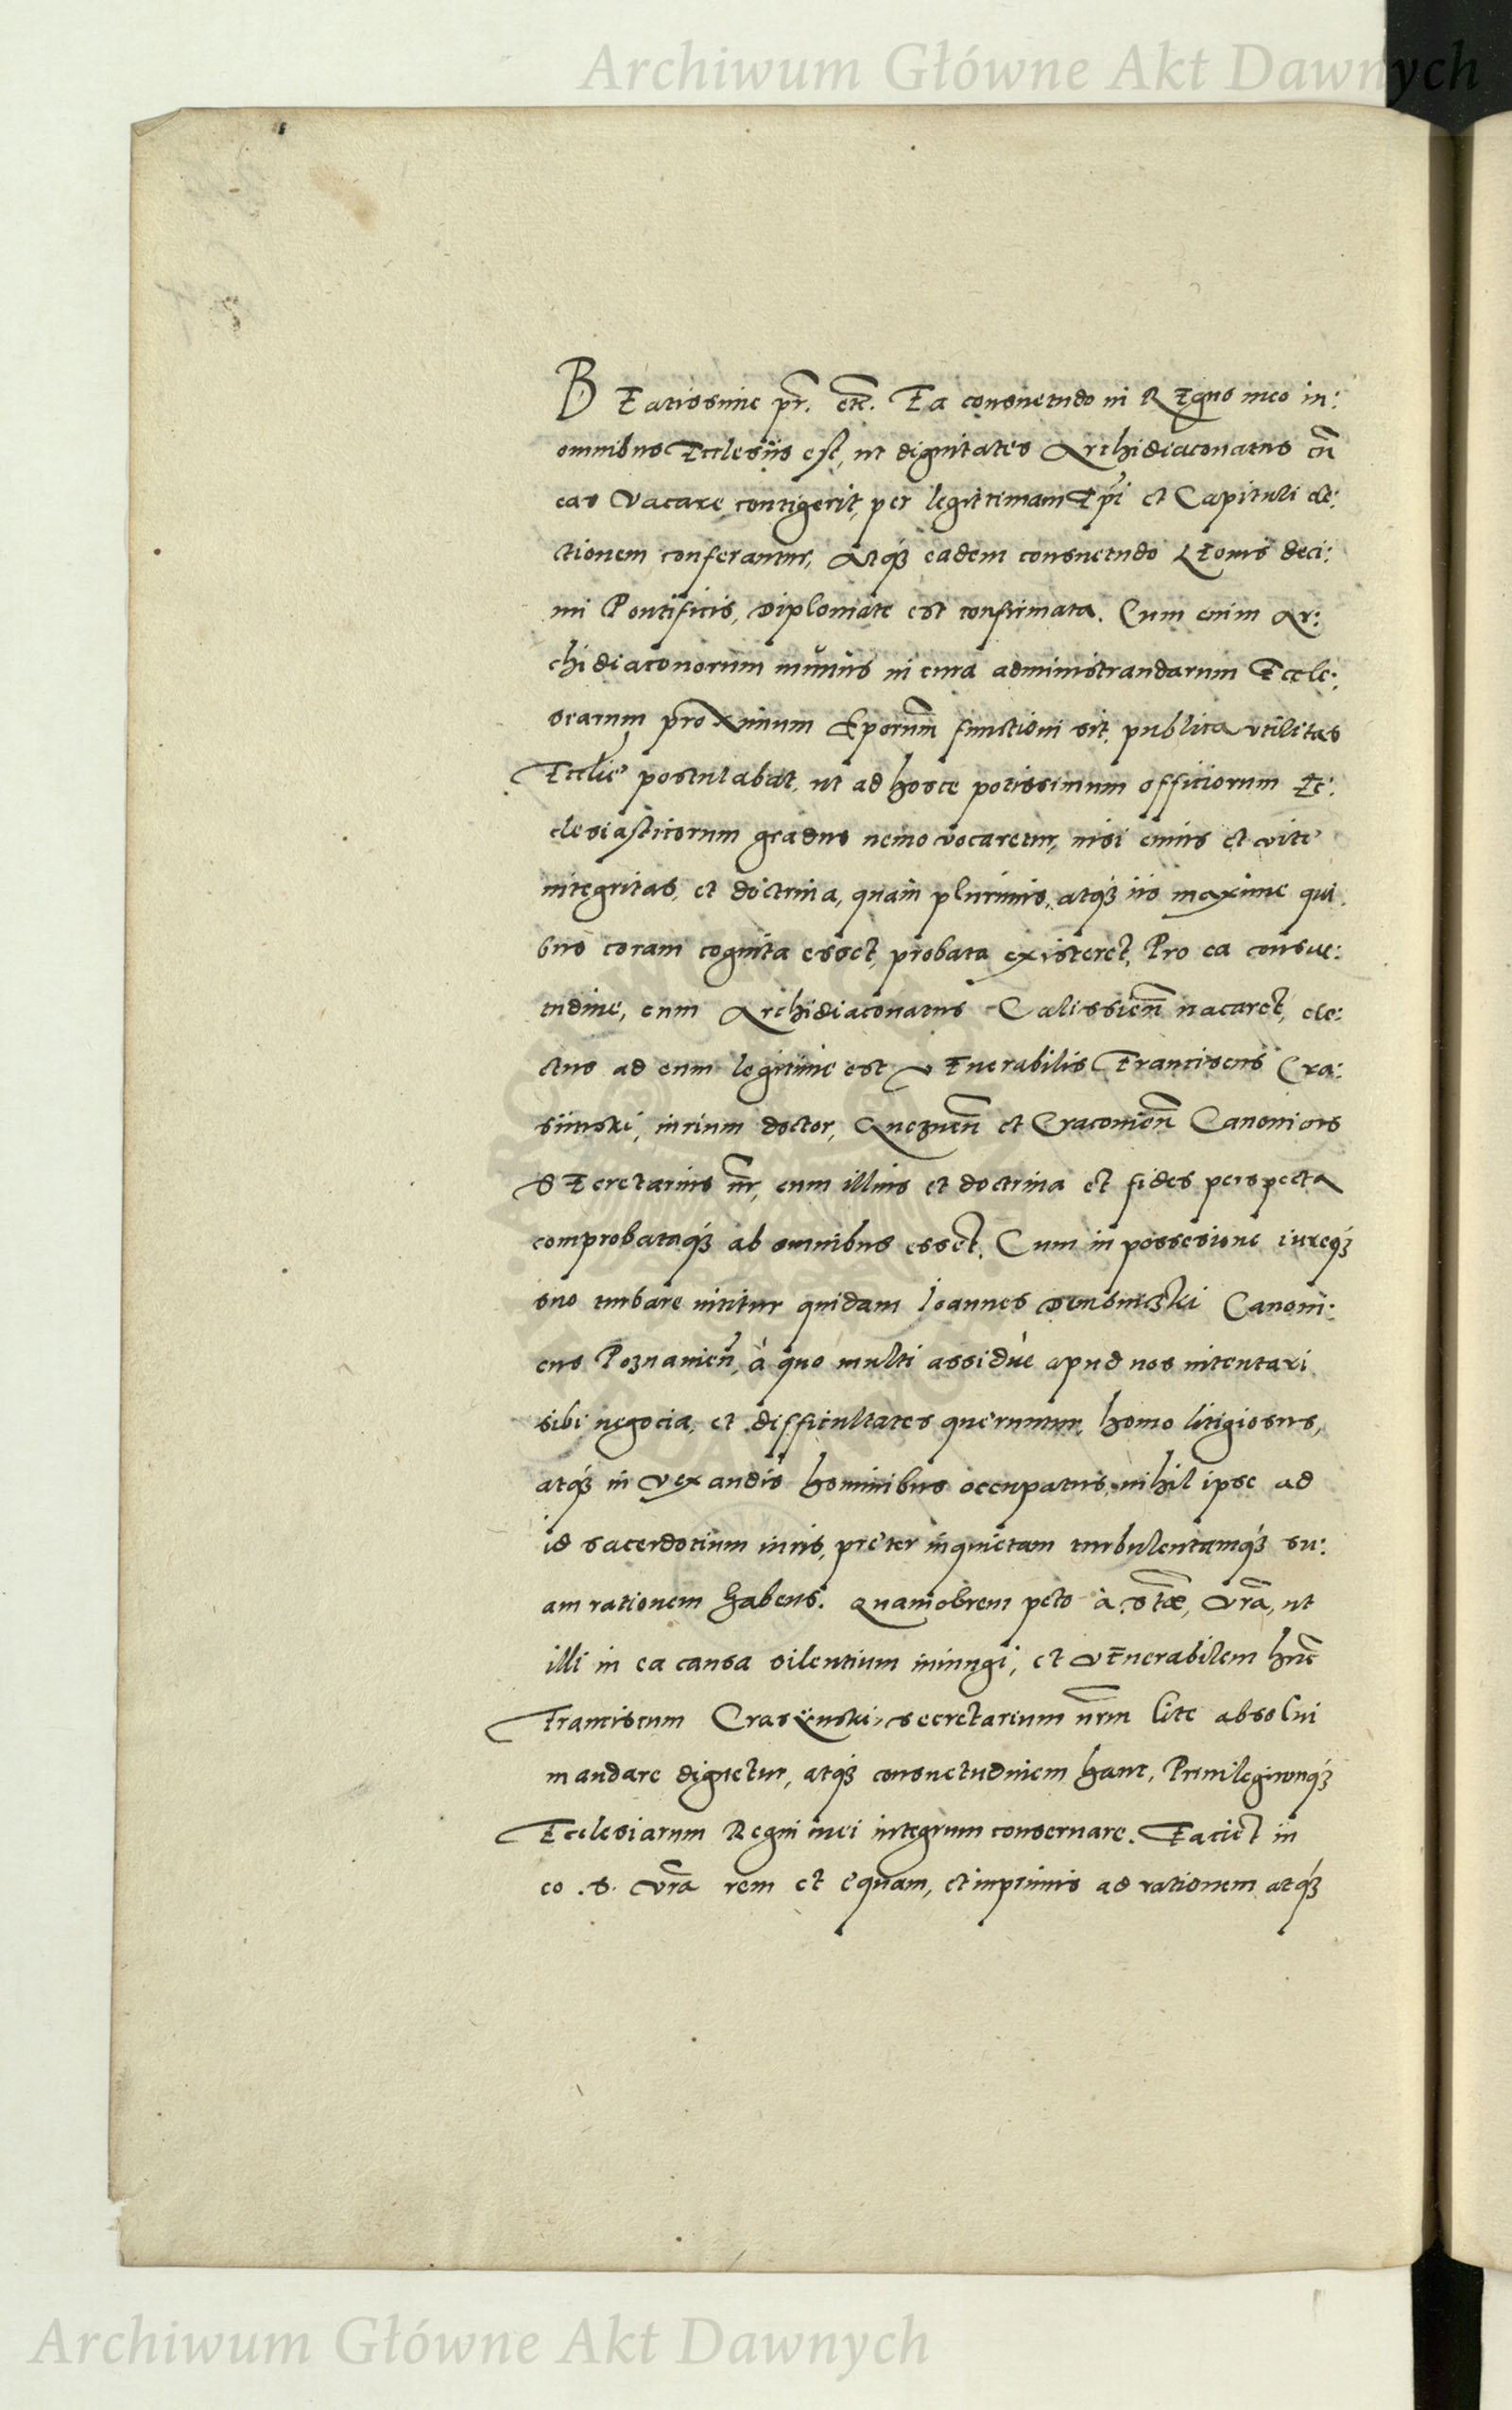 Archiwum Główne Akt Dawnych
BEatissime pr̃. etc̃. Ea consuetudo in REgno meo in:
omnibus Ecclesiis est, ut dignitates Archidiaconatus cũ
eas Vacare contigerit, per legittimam Ep̃i et Capituli ele:
ctionem conferantur, Atq₃ eadem consuetudo LEonis deci:
mi Pontificis, Diplomate est confirmata. Cum enim Ar:
chidiaconorum munus in cura administrandarum Eccle:
siarum proximum Ep̃orum functioni sit, publica utilitas
Eccliẽ postulabat, ut ad hosce potissimum officiorum Ec:
clesiasticorum gradus nemo vocaretur, nisi cuius et vite
integritas, et doctrina, quam plurimis, atq₃ iis maxime qui
bus coram cognita esset, probata existeret. Pro ea consue:
tudine, cum Archidiaconatus Calissieñ vacaret, ele:
ctus ad eum legitime est VEnerabilis Franciscus Cra:
siinski, iurium doctor, Gneznen̄ et Cracovien̄ Canonicus
SEcretarius nr̃, cum illius et doctrina et fides perspecta
comprobataq₃ ab omnibus esset. Cum in possesione iureq₃
suo turbare nititur quidam Ioannes Canoni:
cus Poznanieñ, à quo multi assiduè apud nos intentari
sibi negocia, et difficultates queruntur, homo litigiosus,
atq₃ in vexandis hominibus occupatus, nihil ipse ad
id sacerdotium iuris, preter inquietam turbulentamq₃ su:
am rationem habens. Quamobrem peto à S̃te, Vr̃a, ut
illi in ea causa silentium iniungi, et VEnerabilem hũc
Franciscum Crasÿnski, secretarium nr̃m lite absolui
mandare dignetur, atq₃ consuetudinem hanc, Priuilegiumq₃
Ecclesiarum Regni mei integrum conseruare. Faciet in
eo .S. Vr̃a rem et equam, et inprimis ad rationem atq₃
Archiwum Główne Akt Dawnych